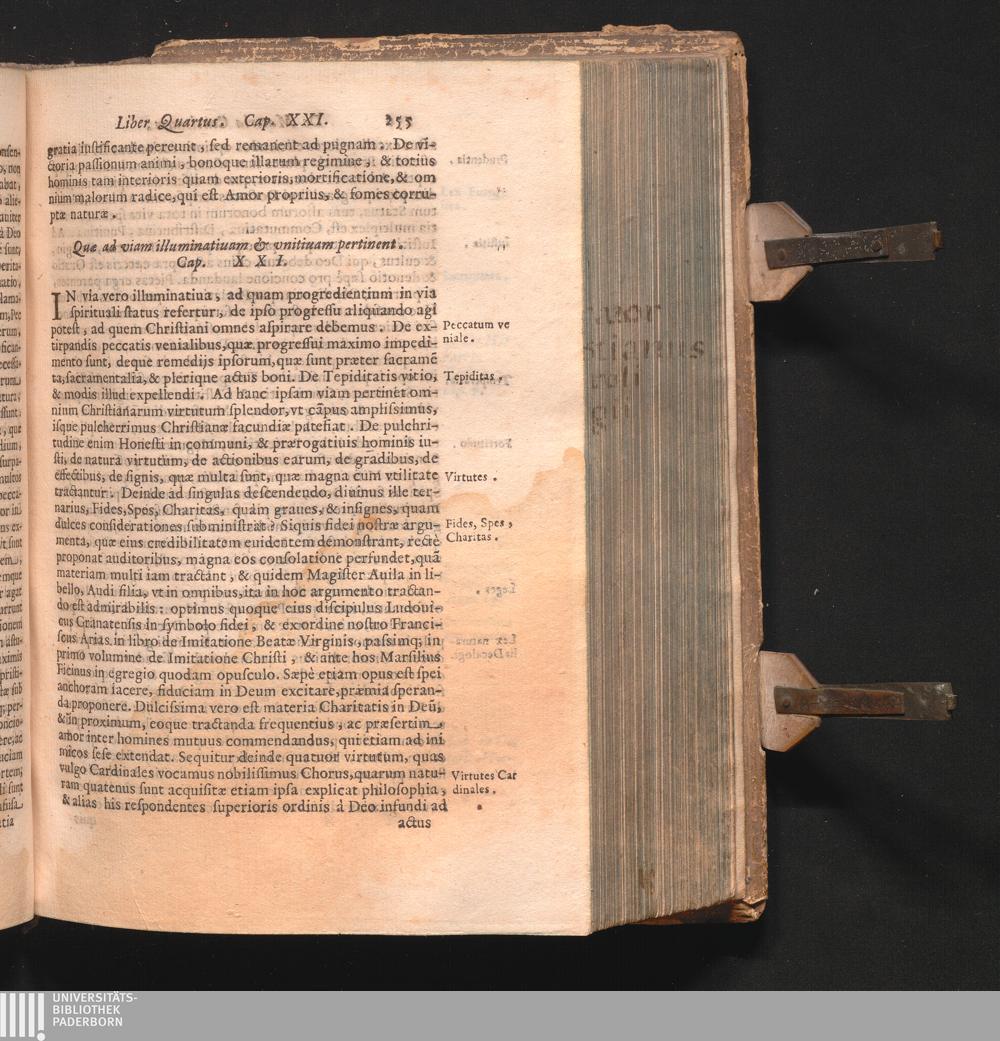 Liber Quartus. Cap. XXI. 255
gratia iustificante pereunt, sed remanent ad pugnam. De vi-
ctoria passionum animi, bonoque illarum regimine, & totius
hominis tam interioris quam exterioris, mortificatione, & om
nium malorum radice, qui est Amor proprius, & fomes corru-
ptæ naturæ.
Quæ ad viam illuminatiuam & vnitiuam pertinent.
Cap. XXI.
IN via vero illuminatiua, ad quam progredientium in via
spirituali status refertur, de ipso progressu aliquando agi
potest, ad quem Christiani omnes aspirare debemus. De ex-
tirpandis peccatis venialibus, quæ progressui maximo impedi-
mento sunt, deque remedijs ipsorum, quæ sunt præter sacramē
ta, sacramentalia, & plerique actus boni. De Tepiditatis vitio,
& modis illud expellendi. Ad hanc ipsam viam pertinet om-
nium Christianarum virtutum splendor, vt cāpus amplissimus,
isque pulcherrimus Christianæ facundiæ patefiat. De pulchri-
tudine enim Honesti in communi, & prærogatiuis hominis iu-
sti, de natura virtutum, de actionibus earum, de gradibus, de
effectibus, de signis, quæ multa sunt, quæ magna cum vtilitate
tractantur. Deinde ad singulas descendendo, diuinus ille ter-
narius, Fides, Spes, Charitas, quàm graues, & insignes, quam
dulces considerationes subministrat? Siquis fidei nostræ argu-
menta, quæ eius credibilitatem euidentem demonstrant, rectè
proponat auditoribus, magna eos consolatione perfundet, quā
materiam multi iam tractant, & quidem Magister Auila in li-
bello, Audi filia, vt in omnibus, ita in hoc argumento tractan-
do est admirabilis: optimus quoque eius discipulus Ludoui-
cus Granatensis in symbolo fidei, & ex ordine nostro Franci-
scus Arias in libro de Imitatione Beatæ Virginis, passimq; in
primo volumine de Imitatione Christi, & ante hos Marsilius
Ficinus in egregio quodam opusculo. Sæpè etiam opus est spei
anchoram iacere, fiduciam in Deum excitare, præmia speran-
da proponere. Dulcissima vero est materia Charitatis in Deū,
& in proximum, eoque tractanda frequentius, ac præsertim
amor inter homines mutuus commendandus, qui etiam ad ini
micos sese extendat. Sequitur deinde quatuor virtutum, quas
vulgo Cardinales vocamus nobilissimus Chorus, quarum natu-
ram quatenus sunt acquisitæ etiam ipsa explicat philosophia,
& alias his respondentes superioris ordinis à Deo infundi ad
actus
Peccatum ve
niale.
Tepiditas.
Virtutes.
Fides, Spes,
Charitas.
Virtutes Car
dinales.
UNIVERSITÄTS-
BIBLIOTHEK
PADERBORN